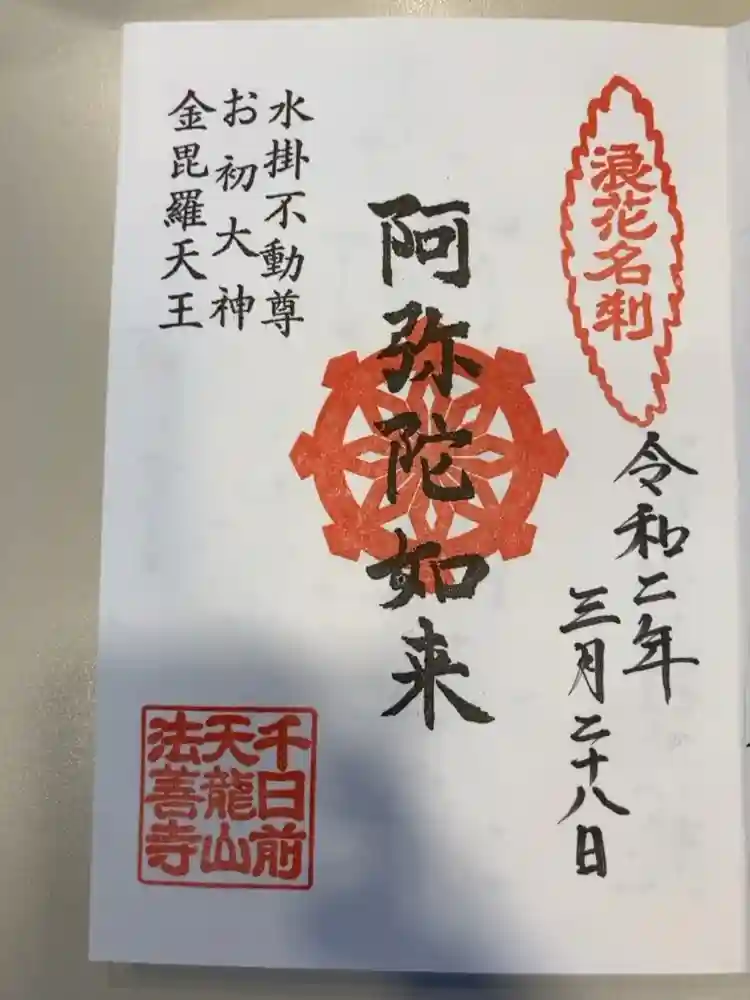 浪花名刹
令和二年
三月二十八日
阿弥陀如来
水掛不動尊
お初大神
金毘羅天王
千日前
天龍山
法善寺